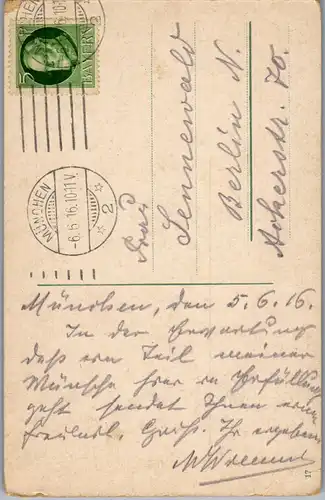 5
BAYERN
MÜNCHEN
-6.6.16.10-11 V.
* 2 *
Frau
Sennewald
Berlin N.
Ackerstr. 70.
München, den 5.6.16.
In der Erwartung
daß ein Teil meiner
Wünsche hier in Erfüllung
geht sendet Ihnen
freundl. Grüße Ihr ergebener
17